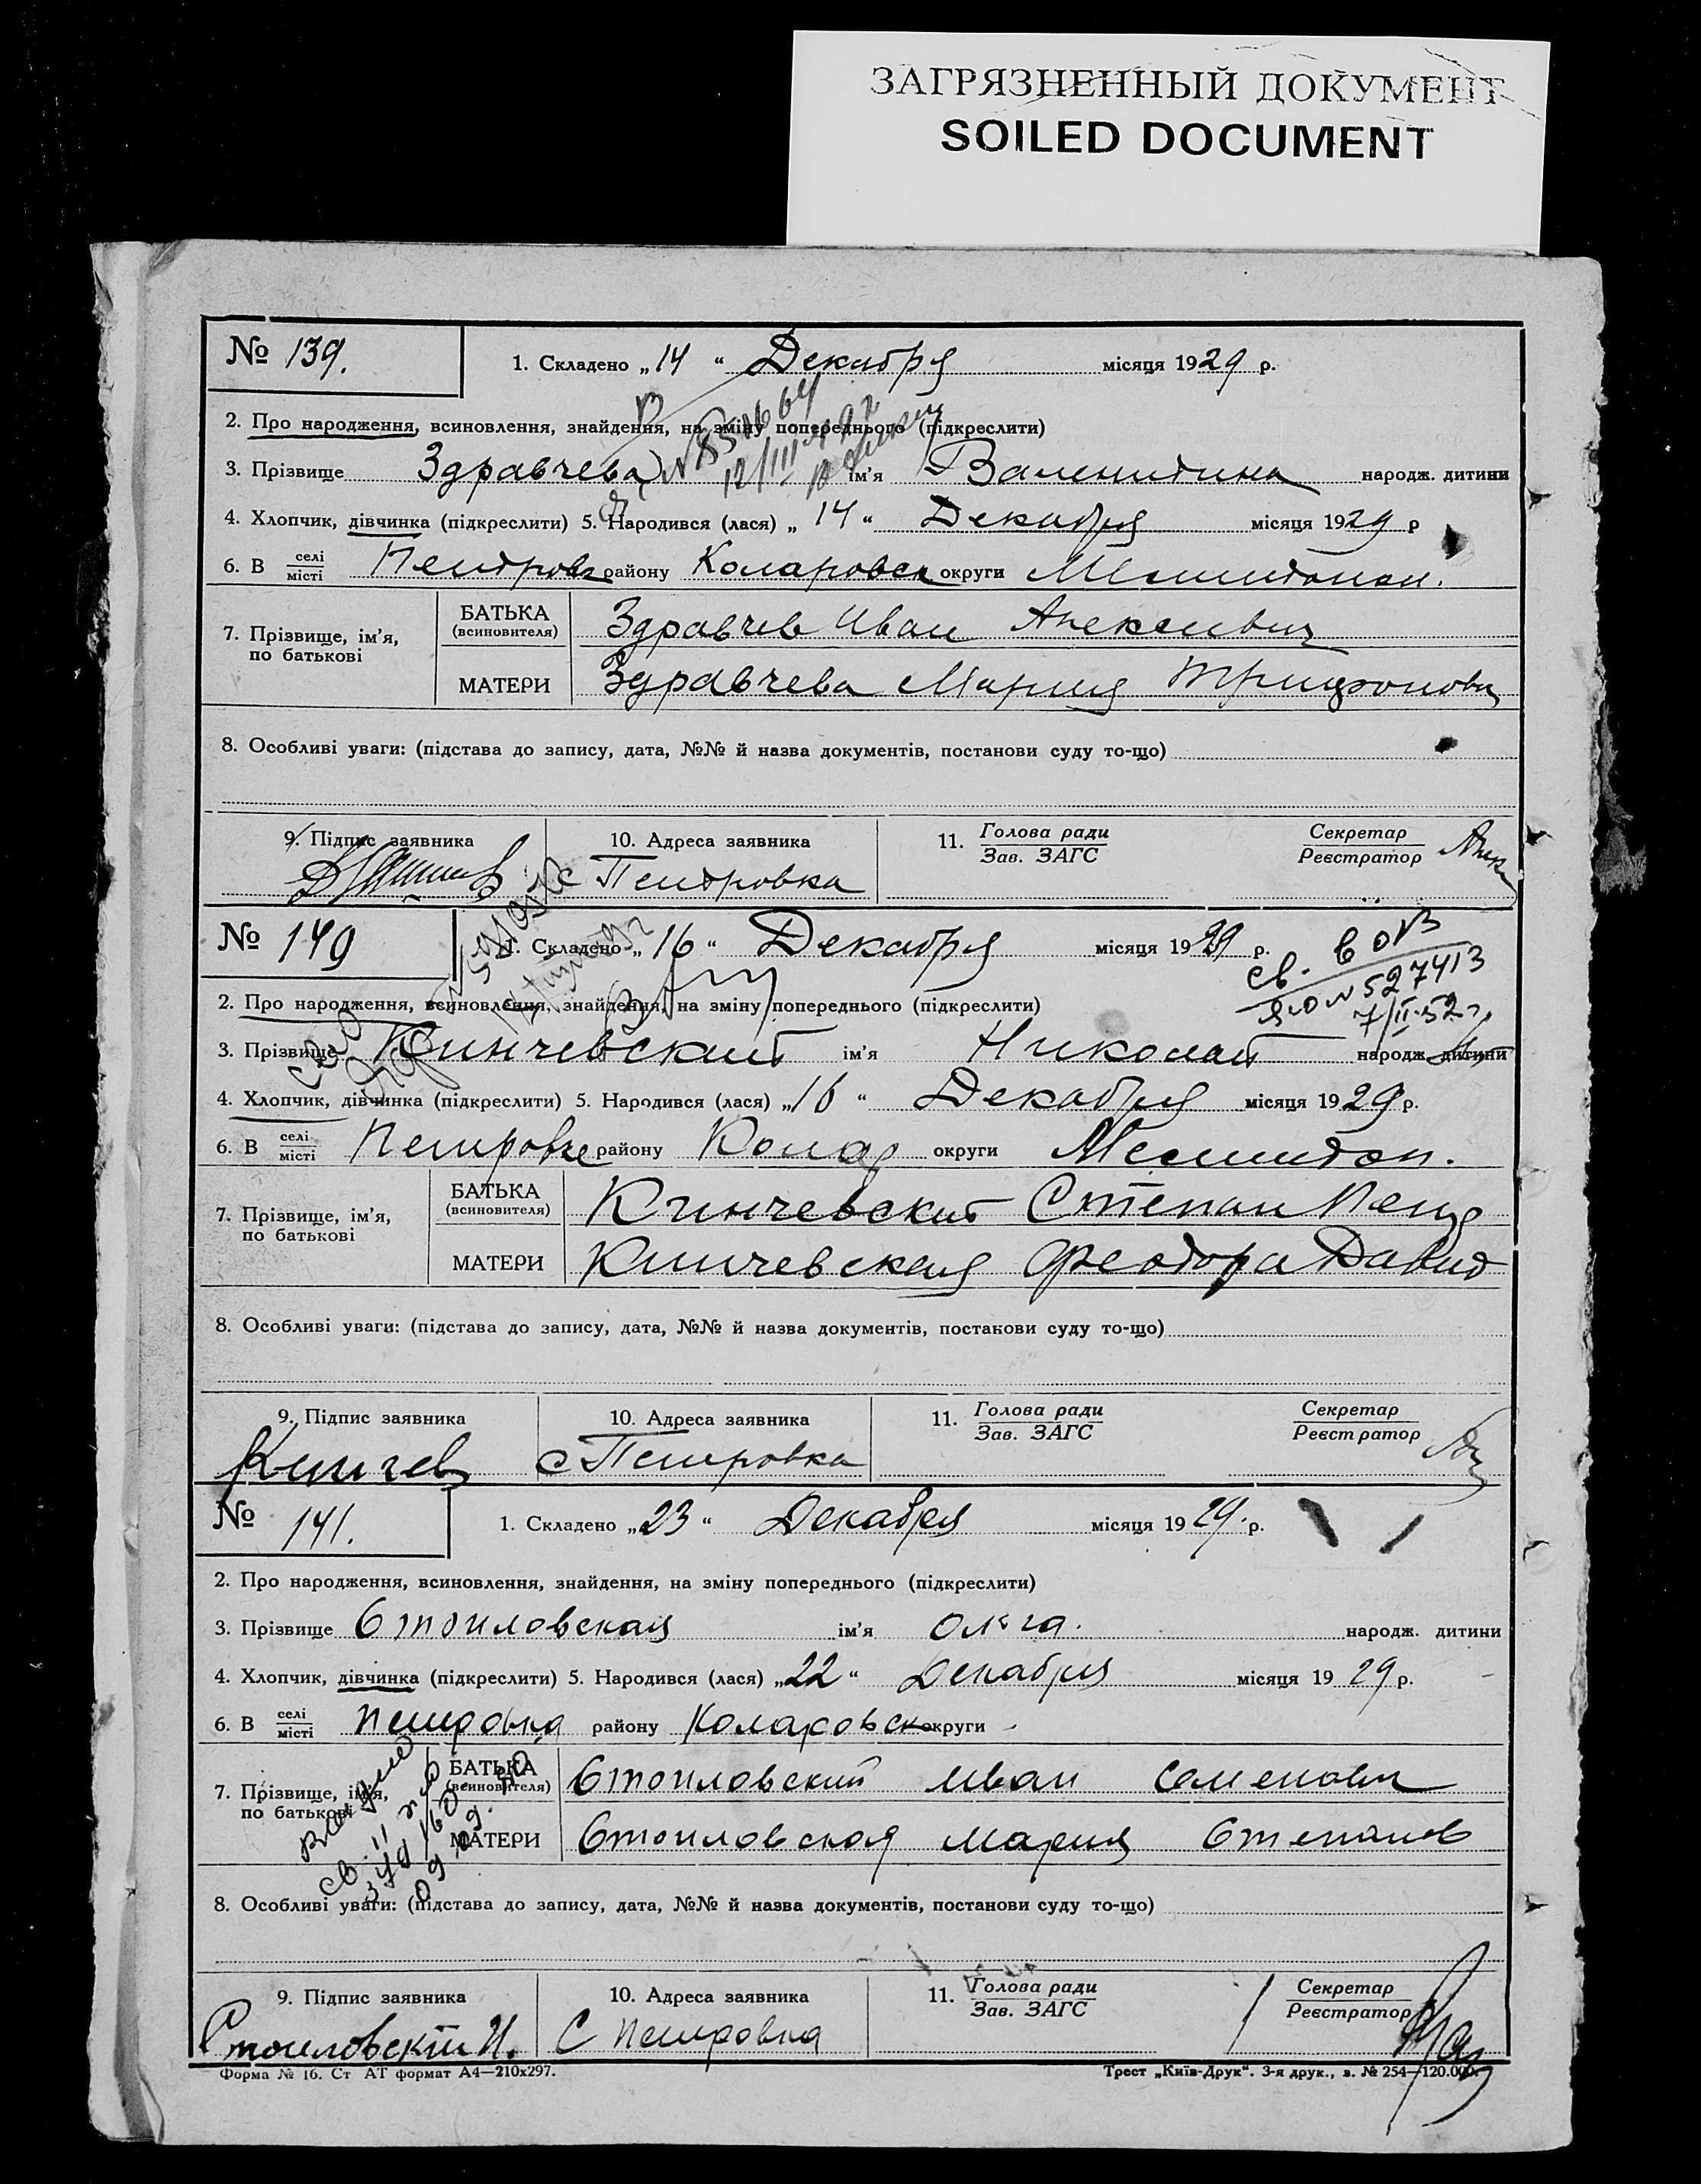 ЗАГРЯЗНЕННЫЙ ДОКУМЕНТ
SOILED DOCUMENT
№ 139. 1. Складено „14“ Декабря місяця 1929 р.
2. Про народження, всиновлення, знайдення, на зміну попереднього (підкреслити)
3. Прізвище Здравчева ім’я Валентина народж. дитини
4. Хлопчик, дівчинка (підкреслити) 5. Народився (лася) „14“ Декабря місяця 1929 р
6. В селі місті Петровке району Коларовск округи Мелитопол.
7. Прізвище, ім’я, по батькові
БАТЬКА (всиновителя) Здравчев Иван Алексеевич
МАТЕРИ Здравчева Мария Трифоновн
8. Особливі уваги: (підстава до запису, дата, №№ й назва документів, постанови суду то-що)
9. Підпис заявника 10. Адреса заявника 11. Голова ради Зав. ЗАГС Секретар Реєстратор
с Петровка
№ 140 1. Складено „16“ Декабря місяця 1929 р.
св. в ОВЗ
ЯЮ № 527413
7/II-52г
2. Про народження, всиновлення, знайдення, на зміну попереднього (підкреслити)
3. Прізвище Кинчевский ім’я Николай народж. дитини
4. Хлопчик, дівчинка (підкреслити) 5. Народився (лася) „16“ Декабря місяця 1929 р.
6. В селі місті Петровке району Колар округи Мелитоп.
7. Прізвище, ім’я, по батькові
БАТЬКА (всиновителя) Кинчевский Степан Петр
МАТЕРИ Кинчевская Феодора Давид
8. Особливі уваги: (підстава до запису, дата, №№ й назва документів, постанови суду то-що)
9. Підпис заявника 10. Адреса заявника 11. Голова ради Зав. ЗАГС Секретар Реєстратор
Кинчев с Петровка
№ 141. 1. Складено „23“ Декабря місяця 1929. р.
2. Про народження, всиновлення, знайдення, на зміну попереднього (підкреслити)
3. Прізвище Стоиловская ім’я Ольга. народж. дитини
4. Хлопчик, дівчинка (підкреслити) 5. Народився (лася) „22“ Декабря місяця 1929 р.
6. В селі місті Петровка району Коларовск округи
7. Прізвище, ім’я, по батькові
БАТЬКА (всиновителя) Стоиловский Иван Семенович
МАТЕРИ Стоиловская Мария Степанов
8. Особливі уваги: (підстава до запису, дата, №№ й назва документів, постанови суду то-що)
9. Підпис заявника 10. Адреса заявника 11. Голова ради Зав. ЗАГС Секретар Реєстратор
Стоиловский И. С Петровка
Форма № 16. Ст АТ формат А4—210x297. Трест „Київ-Друк“. 3-я друк., з. № 254—120.000.